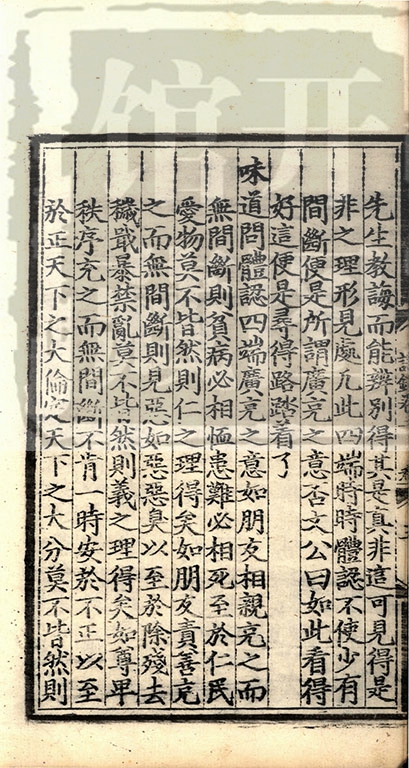 先生教誨而能辨別得其是真非這可見得是
非之理形見處凡此四端時時體認不使少有
間斷便是所謂廣充之意否文公曰如此看得
好這便是尋得路踏着了
味道問體認四端廣充之意如朋友相親充之而
無間斷則貧病必相恤患難必相死至於仁民
愛物莫不皆然則仁之理得矣如朋友責善充
之而無間斷則見惡如惡惡臭以至於除殘去
穢戢暴禁亂莫不皆然則義之理得矣如尊卑
秩序充之而無間斷不肯一時安於不正以至
於正天下之大倫定天下之大分莫不皆然則